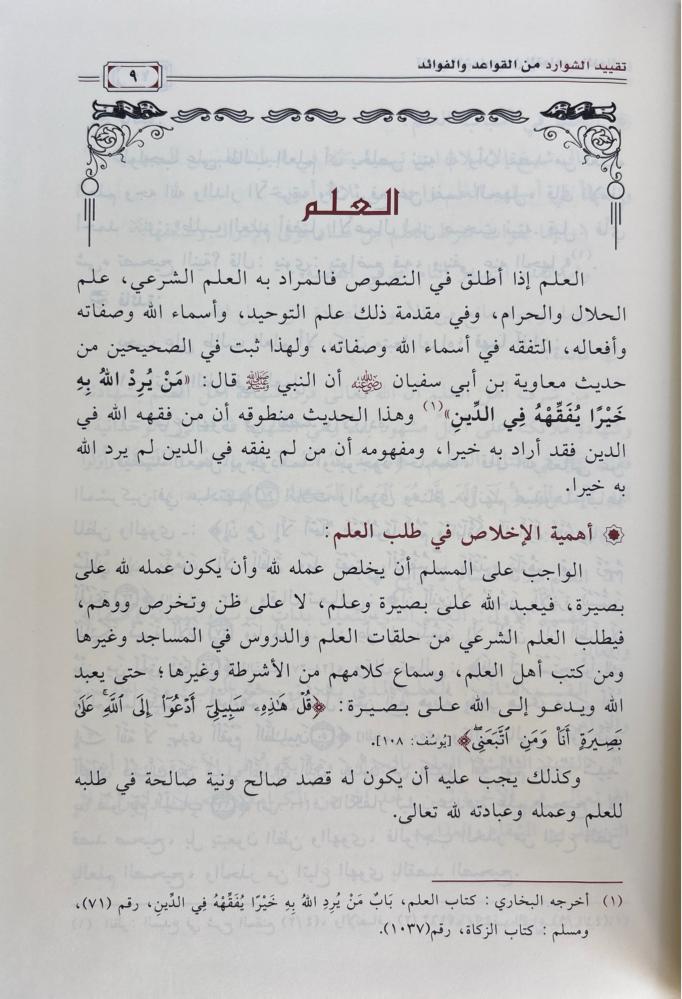 تقييد الشوارد من القواعد والفوائد
٩
العلم
العلم إذا أطلق في النصوص فالمراد به العلم الشرعي، علم
الحلال والحرام، وفي مقدمة ذلك علم التوحيد، وأسماء الله وصفاته
وأفعاله، التفقه في أسماء الله وصفاته، ولهذا ثبت في الصحيحين من
حديث معاوية بن أبي سفيان رضي الله عنه أن النبي ﷺ قال: «مَنْ يُرِدْ اللهُ بِهِ
خَيْرًا يُفَقِّهْهُ فِي الدِّينِ»(١) وهذا الحديث منطوقه أن من فقهه الله في
الدين فقد أراد به خيرا، ومفهومه أن من لم يفقه في الدين لم يرد الله
به خيرا.
أهمية الإخلاص في طلب العلم:
الواجب على المسلم أن يخلص عمله لله وأن يكون عمله لله على
بصيرة، فيعبد الله على بصيرة وعلم، لا على ظن وتخرص ووهم،
فيطلب العلم الشرعي من حلقات العلم والدروس في المساجد وغيرها
ومن كتب أهل العلم، وسماع كلامهم من الأشرطة وغيرها؛ حتى يعبد
الله ويدعو إلى الله على بصيرة: ﴿قُلْ هَٰذِهِۦ سَبِيلِىٓ أَدْعُوٓا۟ إِلَى ٱللَّهِ ۚ عَلَىٰ
بَصِيرَةٍ أَنَا۠ وَمَنِ ٱتَّبَعَنِى ۖ﴾ [يُوسُف: ١٠٨].
وكذلك يجب عليه أن يكون له قصد صالح ونية صالحة في طلبه
للعلم وعمله وعبادته لله تعالى.
(١) أخرجه البخاري: كتاب العلم، بَابٌ مَنْ يُرِدِ اللهُ بِهِ خَيْرًا يُفَقِّهْهُ فِي الدِّينِ، رقم (٧١)،
ومسلم: كتاب الزكاة، رقم(١٠٣٧).